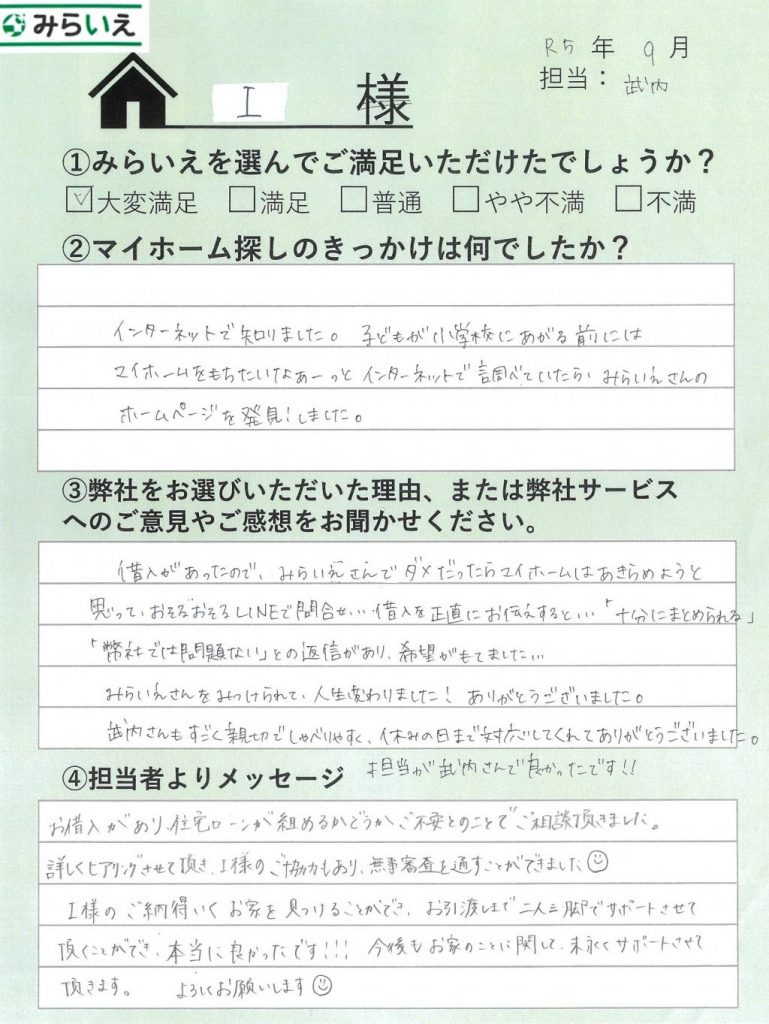 みらいえ
R5年 9月
I 様
担当： 武内
①みらいえを選んでご満足いただけたでしょうか？
☑大変満足 □満足 □普通 □やや不満 □不満
②マイホーム探しのきっかけは何でしたか？
インターネットで知りました。子どもが小学校にあがる前には
マイホームをもちたいなぁーっとインターネットで調べていたら、みらいえさんの
ホームページを発見！しました。
③弊社をお選びいただいた理由、または弊社サービス
へのご意見やご感想をお聞かせください。
借入があったので、みらいえさんでダメだったらマイホームはあきらめようと
思って、おそるおそるLINEで問合せ… 借入を正直にお伝えすると…「十分にまとめられる」
「弊社では問題ない」との返信があり、希望がもてました…
みらいえさんをみつけられて、人生変わりました！ ありがとうございました。
武内さんもすごく親切でしゃべりやすく、休みの日まで対応してくれてありがとうございました。
担当が武内さんで良かったです!!
④担当者よりメッセージ
お借入があり、住宅ローンが組めるかどうかご不安とのことでご相談頂きました。
詳しくヒアリングさせて頂き、I様のご協力もあり、無事審査を通すことができました☺
I様のご納得いくお家を見つけることができ、お引渡しまで二人三脚でサポートさせて
頂くことができ、本当に良かったです!!! 今後もお家のことに関して、末永くサポートさせて
頂きます。 よろしくお願いします☺